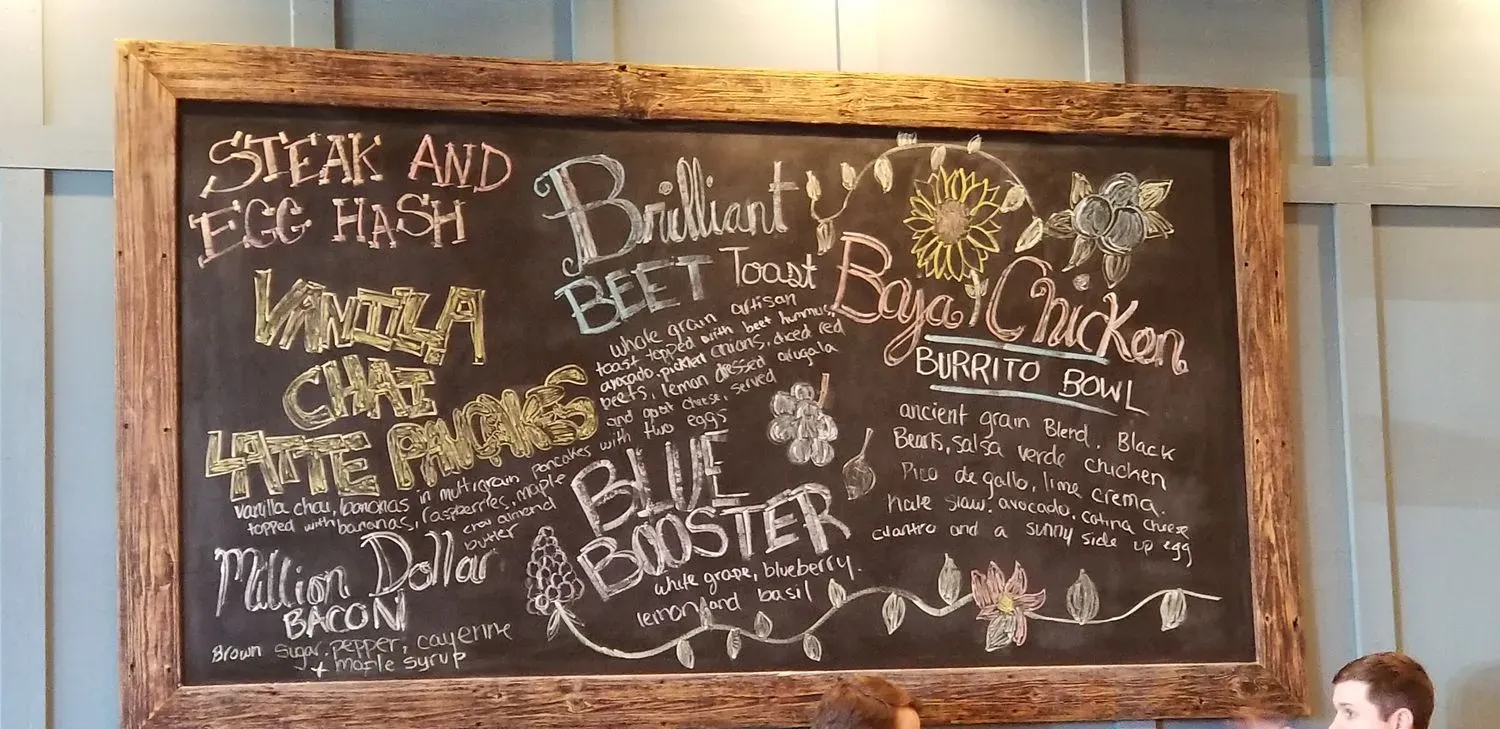 STEAK AND
EGG HASH
VANILLA
CHAI
LATTE PANCAKES
vanilla chai, bananas in multigrain pancakes
topped with bananas, raspberries, maple
chai almond
butter
Million Dollar
BACON
Brown sugar, pepper, cayenne
+ maple syrup
Brilliant
BEET Toast
whole grain artisan
toast topped with beet hummus,
avocado, pickled onions, diced red
beets, lemon dressed arugala
and goat cheese, served
with two eggs
BLUE
BOOSTER
white grape, blueberry.
lemon and basil
Baja Chicken
BURRITO BOWL
ancient grain Blend. Black
Beans, salsa verde chicken
Pico de gallo, lime crema.
Kale slaw. avocado, cotina cheese
cilantro and a sunny side up egg